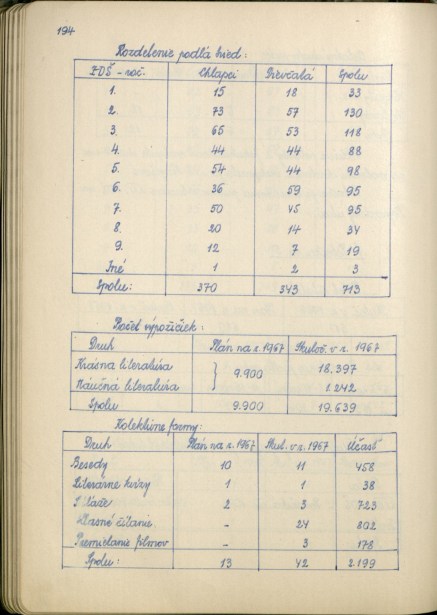 194
Rozdelenie podľa tried:
ZDŠ - roč. Chlapci Dievčatá Spolu
1. 15 18 33
2. 73 57 130
3. 65 53 118
4. 44 44 88
5. 54 44 98
6. 36 59 95
7. 50 45 95
8. 20 14 34
9. 12 7 19
Iné 1 2 3
Spolu: 370 343 713
Počet výpožičiek:
Druh Plán na r. 1967 Skutoč. v r. 1967
Krásna literatúra 9.900 18.397
Náučná literatúra 1.242
Spolu 9.900 19.639
Kolektívne formy:
Druh Plán na r. 1967 Skut. v r. 1967 Účasť
Besedy 10 11 458
Literárne kvízy 1 1 38
Súťaže 2 3 723
Hlasné čítanie - 24 802
Premietanie filmov - 3 178
Spolu: 13 42 2.199